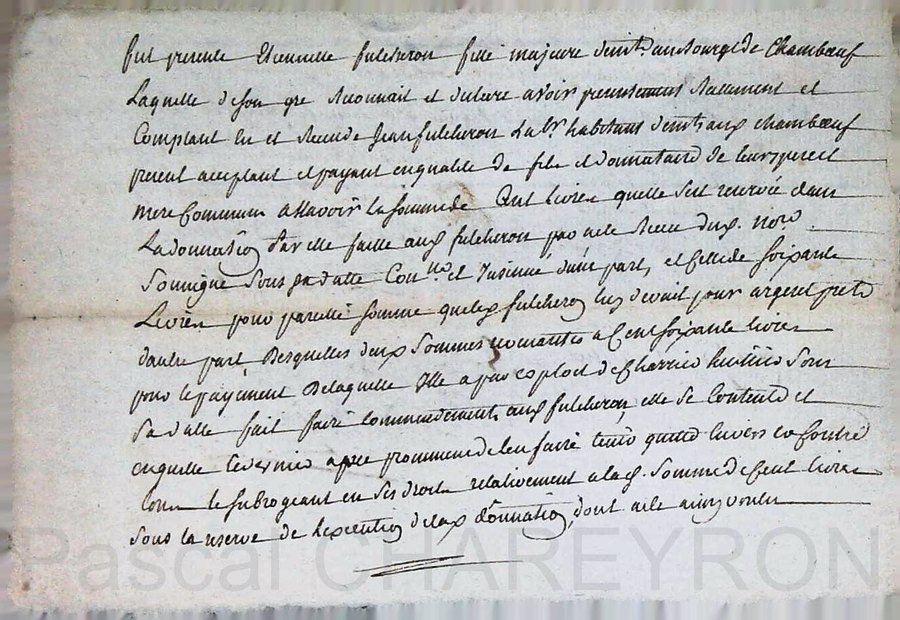 fut presente Etiennette fulcheron fille majeure au bourg de Chambœuf
Laquelle de son gré Reconnait et declare avoir presentement Reellement et
Comptant Eu et Receu de Jean fulcheron Lab.r habitant aud. Chambœuf
present acceptant et payant en qualité de fils et donnataire de leurs pere et
mere Communs assavoir la somme de Cent livres quelle sest reservée dans
La donnation par elle faitte aud. fulcheron par acte Receu dud. no.re
Soussigné Sous sa datte Con.llé et Insinué d'une part, et celle de soixante
Livres pour pareille somme que led. fulcheron luy devait pour argent preté
dautre part, Desquelles deux Sommes montantes a Cent soixante livres
pour le payement De laquelle Elle a par exploit de huissier Sous
Sa datte fait faire Commandement aud. fulcheron elle se Contente et
en quitte Ce dernier avec promesse de len faire tenir quitte Envers et Contre
tous le subrogeant en ses droits relativement a lad. Somme de Cent livres
Sous la reserve de Lexecution de lad. donnation, dont acte ainsy voulu
Pascal CHAREYRON